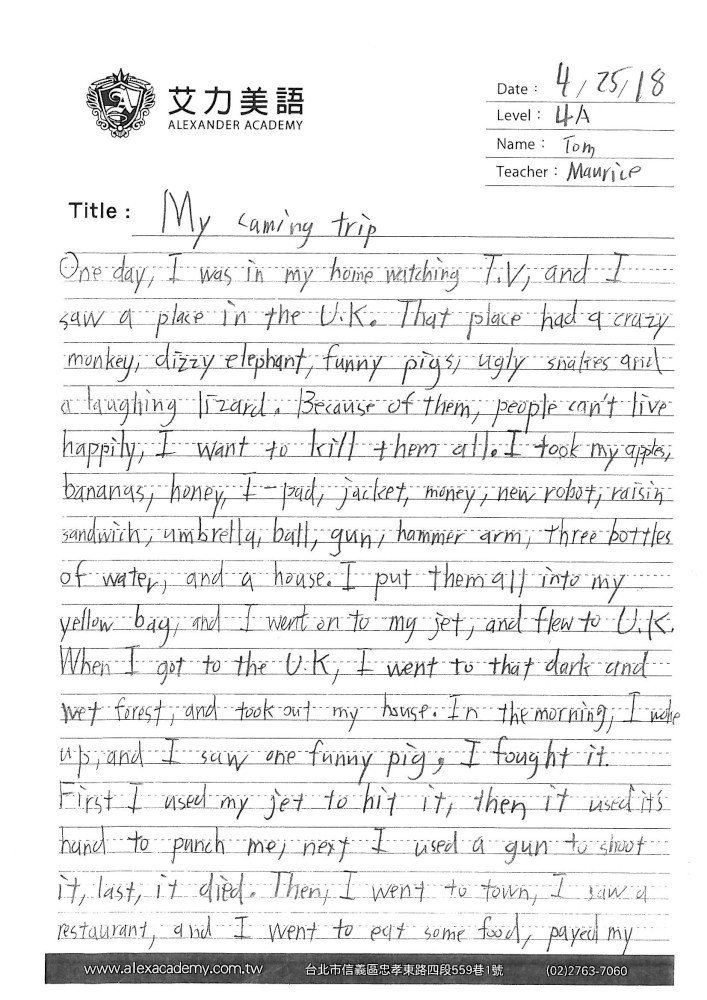 艾力美語
ALEXANDER ACADEMY
Date : 4/25/18
Level : 4A
Name : Tom
Teacher : Maurice
Title : My caming trip
One day, I was in my home watching T.V, and I
saw a place in the U.K. That place had a crazy
monkey, dizzy elephant, funny pigs, ugly snakes and
a laughing lizard. Because of them, people can't live
happily, I want to kill them all. I took my apples,
bananas, honey, I-pad, jacket, money, new robot, raisin
sandwich, umbrella, ball, gun, hammer arm, three bottles
of water, and a house. I put them all into my
yellow bag, and I went on to my jet, and flew to U.K.
When I got to the U.K, I went to that dark and
wet forest, and took out my house. In the morning, I woke
up, and I saw one funny pig, I fought it.
First I used my jet to hit it, then it used it's
hand to punch me, next I used a gun to shoot
it, last, it died. Then, I went to town, I saw a
restaurant, and I went to eat some food, payed my
www.alexacademy.com.tw 台北市信義區忠孝東路四段559巷1號 (02)2763-7060